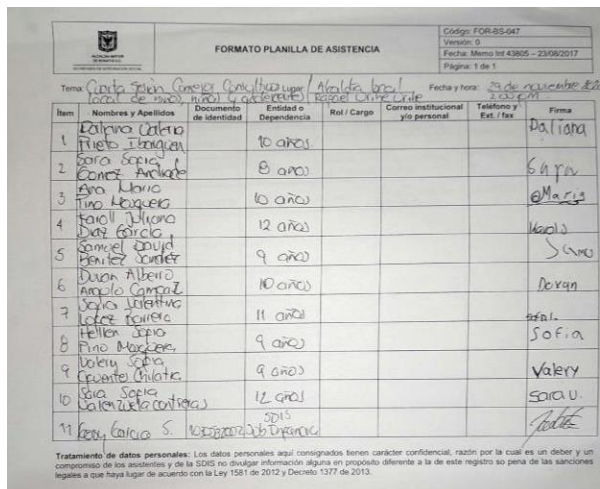 FORMATO PLANILLA DE ASISTENCIA
Código: FOR-BS-047
Versión: 0
Fecha: Memo Int 43805 – 23/08/2017
Página: 1 de 1
Tema: Cuarta Sesión Consejo Consultivo Lugar: Alcaldía local Fecha y hora: 29 de noviembre
local de niños, niñas y adolescentes Rafael Uribe Uribe 2:00 PM
Ítem Nombres y Apellidos Documento de identidad Entidad o Dependencia Rol / Cargo Correo institucional y/o personal Teléfono y Ext. / fax Firma
1 Prieto 10 años Daliana
2 Sara Sofia Gomez Andrade 8 años Sara
3 Ana Maria Pino Mosquera 10 años Maria
4 Karoll Juliana Diaz Garcia 12 años Karol
5 Samuel David Benitez 9 años
6 Alberto Angulo 10 años
7 Sofia Valentina Lopez 11 años
8 Hellen Sofia Pino Mosquera 9 años Sofia
9 Valery Sofia Cifuentes 9 años Valery
10 Sara Sofia Valenzuela Contreras 12 años Sara V.
11 Garcia S. SDIS
Tratamiento de datos personales: Los datos personales aquí consignados tienen carácter confidencial, razón por la cual es un deber y un
compromiso de los asistentes y de la SDIS no divulgar información alguna en propósito diferente a la de este registro so pena de las sanciones
legales a que haya lugar de acuerdo con la Ley 1581 de 2012 y Decreto 1377 de 2013.